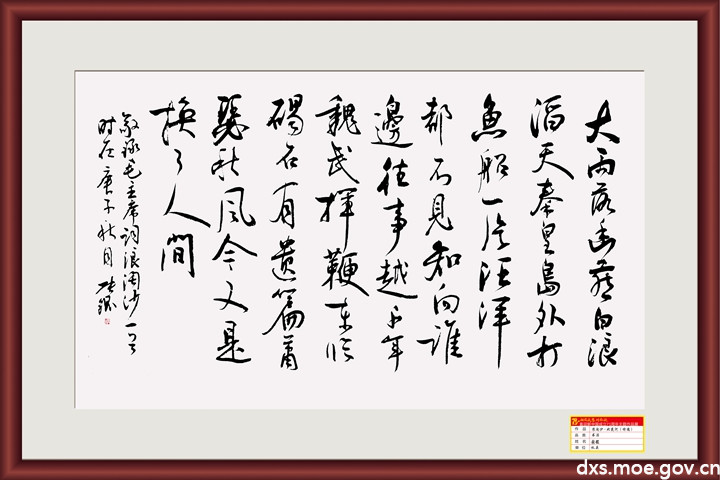 大雨落幽燕白浪
滔天秦皇島外打
魚船一片汪洋
都不見知向誰
邊往事越千年
魏武揮鞭東臨
碣石有遺篇蕭
瑟秋風今又是
換了人間
敬録毛主席词浪淘沙一首
时在庚子秋月
dxs.moe.gov.cn